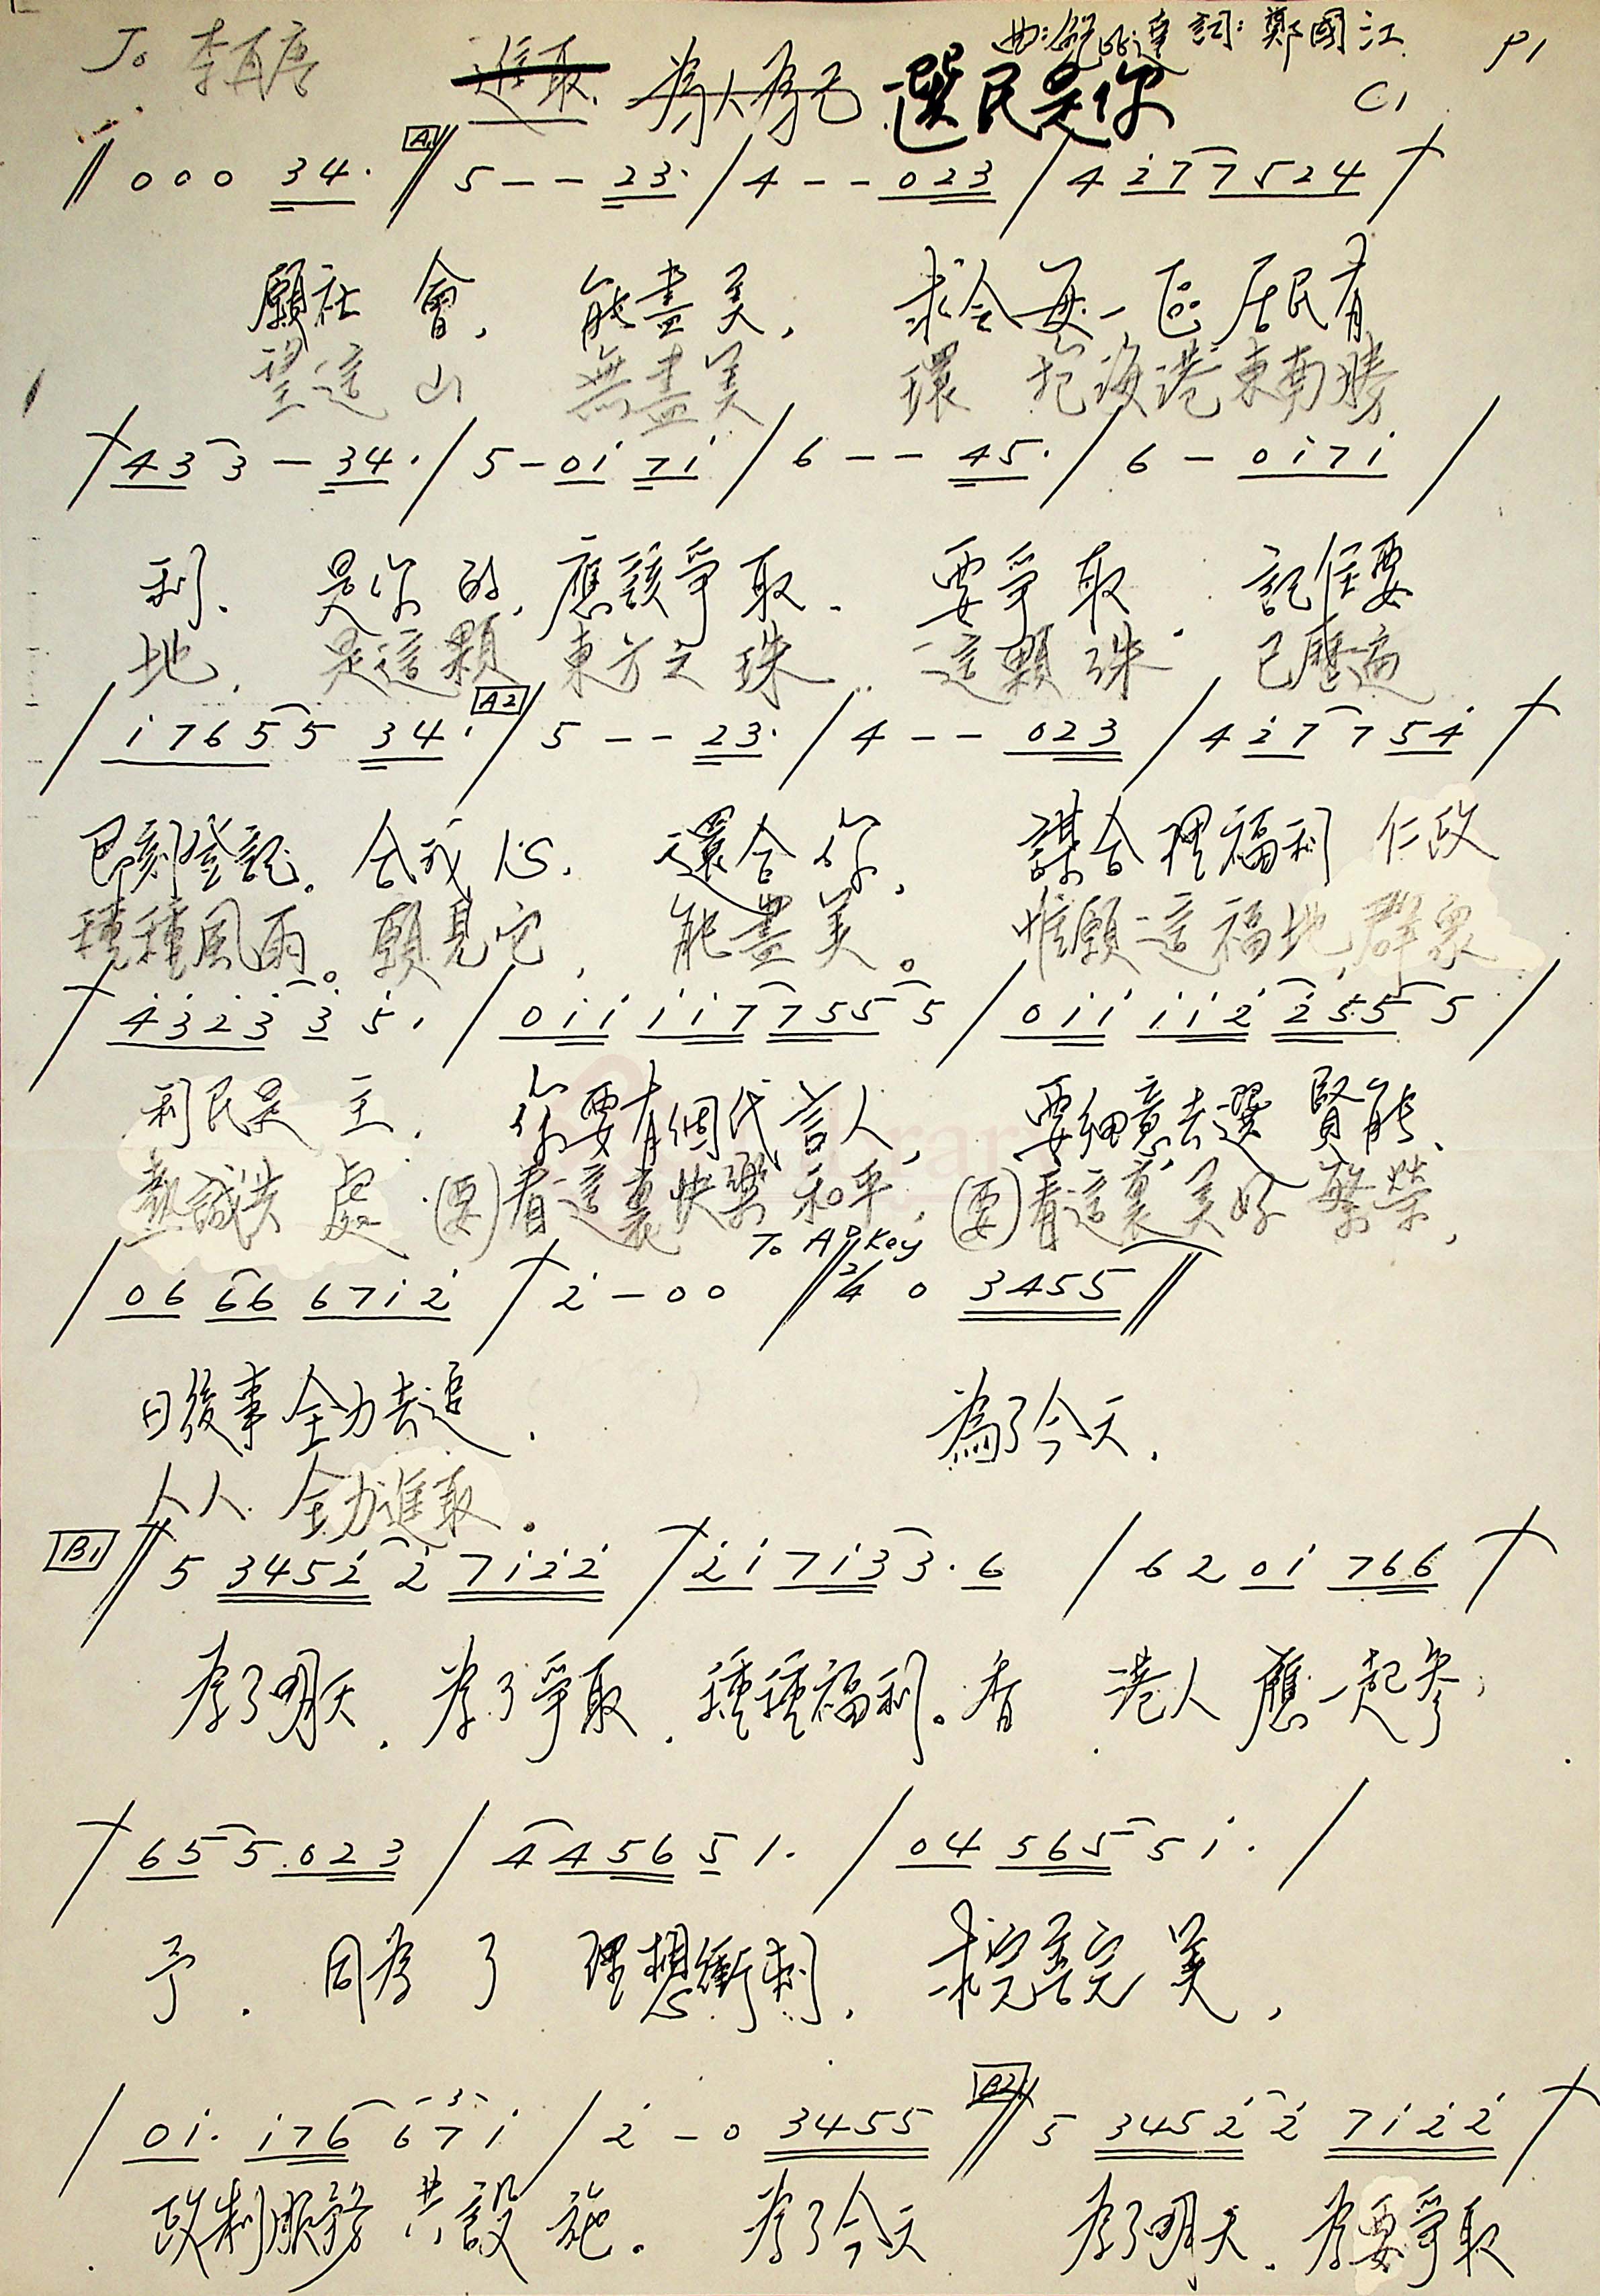 To 李再唐 曲:鮑比達 詞:鄭國江 P1
進取 為人為己 選民是你 C1
A1
// 0 0 0 34. // 5 - - 23. / 4 - - 023 / 4 i77524 /
願社會, 能盡美, 求令每一區居民有
望這山 無盡美 環抱海港東南勝
/ 433 - 34. / 5 - 0i 7i / 6 - - 45. / 6 - 0i7i /
利、是你的,應該爭取. 要爭取 記住要
地, 是這顆東方之珠.. 這顆珠 已歷過
A2
/ i7655 34. / 5 - - 23. / 4 - - 023 / 4 i77 54 /
即刻登記。合我心, 還合你, 謀合理福利 仁政
種種風雨。願見它, 能盡美。 惟願這福地 群眾
/ 43233 5. / 0ii ii7 7555 / 0ii ii2 2555 /
利民是主, 你要有個代言人, 要細意去選賢能、
熱誠共處.(要)看這裏快樂和平, (要)看這裏美好繁榮,
To Ab Key
/ 06 66 67i2 / 2 - 0 0 // 2/4 0 3455 //
日後事全力去追, 為了今天,
人人 全力進取。
B1 // 5 3452 2 7i22 / 2i 7i33. 6 / 6 2 0i 766 /
為了明天, 為了爭取, 種種福利。香港人應一起參
/ 655.023 / 4456 51. / 04 5655 i. /
予. 同為了理想衝刺, 求完善完美,
B2
/ 0i. i76 67i / 2 - 0 3455 // 5 3452 2 7i22 /
政制服務共設施。 為了今天 為了明天. 為要爭取